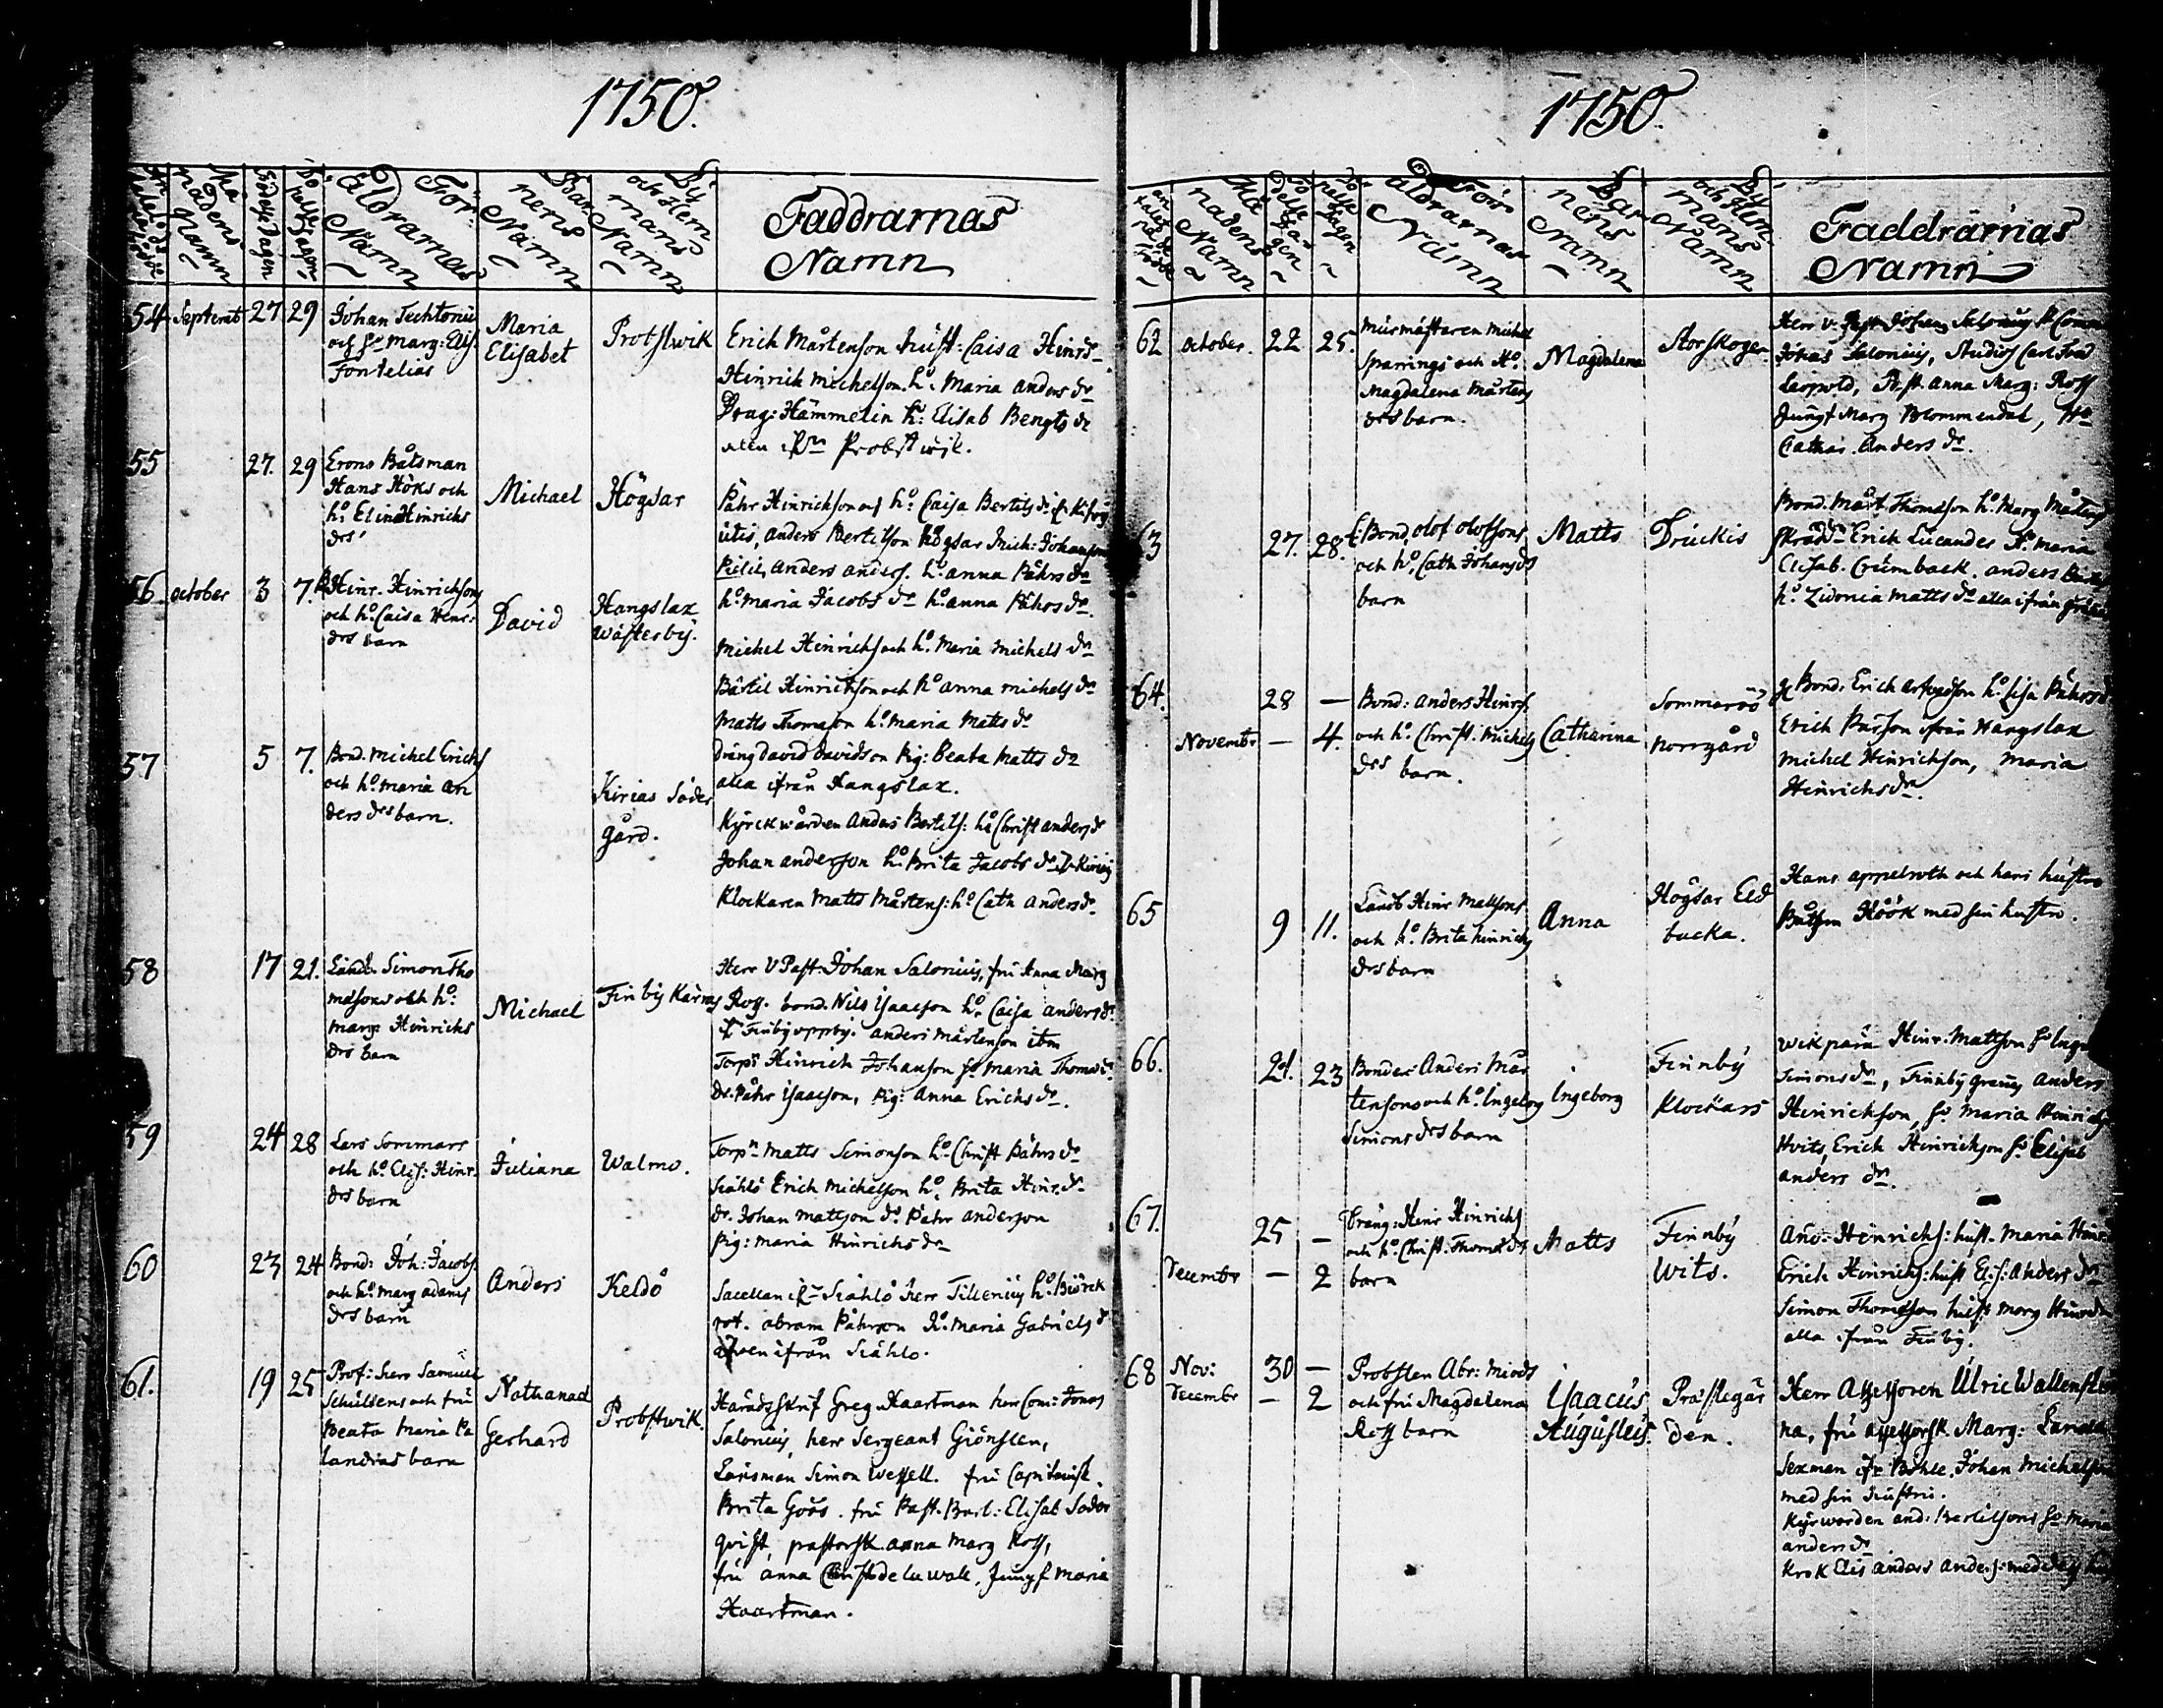 1750.
Föräldrarnas Namn
Barnens Namn
By och Hemmans Namn
Faddrarnas
Namn
54 Septemb 27 29 Johan Techtonii
och ho Marg: Elis.
Fontelias
Maria
Elisabet
Probstwik
Erich Mårtenson hust: Caisa Hinrs-
Hinrich Michelson. ho. Maria anders dr
Drag: Hammelin ho: Elisab Bengts dr
alla ifrn Probstwik.
55 27. 29 Crono Båtsman
Hans Höks och
ho. Elin Hinrichs
drs
Michael
Högsar
Påhr Hinrichson och ho. Caisa Bertils dr
anders Bertilson Högsar Mich: Johanson
anders anders. ho. anna Påhrs dr
ho. Maria Jacobs dr ho. anna Påhrs dr.
56. october 3 7. Hinr. Hinrichsons
och ho. Caisa Henr:
drs barn
David
Hangslax
Wästerby.
Michel Hinrichs och ho. Maria Michels dr
Bärtil Hinrichson och ho anna Michels dr
Matts Thomason ho. Maria Matts dr
dräng David Davidson Pig: Beata Matts dr
alla ifrån Hangslax.
57 5 7. Bond. Michel Erichs
och ho. Maria An
ders drs barn.
Kirias Söder
gård.
Kyrckwärden Anders Bertels: ho Christ anders dr
Johan anderson ho. Brita Jacobs dr
Klockaren Matts Mårtens: ho. Cath anders dr
58 17 21. Landb. Simon Tho
masons och ho:
Marg: Hinrichs
drs barn
Michael
Finby Kärras
Herr V Past. Johan Salonius, fru Anna Marg
Ross. bond. Nils Isaacson ho. Caisa anders dr
Finby uppby. anders Mårtenson itm
Torpr Hinrich Johanson ho Maria Thoms dr
dr. Påhr Isaacson, Pig: Anna Erichs dr.
59 24 28 Lars Sommars
och ho. Elis: Hinr.
drs barn
Juliana
Walmo.
Torpn Matts Simonson ho. Christ Påhrs dr
Siählö Erich Michelson ho. Brita Hinr. dr
dr. Johan Mattson do. Påhr anderson
Pig: Maria Hinrichs dr
60 23 24 Bond. Joh: Jacobs.
och ho. Marg adams
drs barn
Anders
Keldö
Sacellan ifrn Siählö Herr Tillenius ho. Biörck
rot. abram Påhrson ho. Maria Gabriels dr
även ifrån Siählo.
61. 19 25 Prof: herr Samuel
Schultens och fru
Beata Maria Pa
landras barn
Nathanael
Gerhard
Probstwik.
Häradsskrif Greg Haartman herr Com: Jonas
Salonius, herr Sergeant Giönsten,
Länsman Simon Wessell. fru Capitainsk.
Brita Göös. fru Past. Barb: Elisab Söder
qvist, pastorsk anna Marg Ross,
fru anna Christ de la wall, Jungf Maria
Haartman.
1750.
Föräldrarnas Namn
Barnens Namn
By och Hemmans Namn
Faddrarnas
Namn
62 october. 22 25. Murmästaren Michel
Sparrings och ho.
Magdalena Mårtens
drs barn.
Magdalena
Storskogen
Herr v. Past Johan Salonius
Jonas Salonius, Studios Carl Fred
Leopold, Past. Anna Marg: Ross
Jungf Marg Blommendal, ho
Cathar. Anders dr.
63 27. 28. Bond. olof olofsons
och ho. Cath Johans ds
barn
Matts
Druckis
Bond. Mårt. Thomasson ho. Marg Mårtens
Skrädd. Erich Lucander ho. Maria
Elisab. Crumback. anders
ho. Zidonia Matts dr alla ifrån
64. 28 — Bond: Anders Hinrs.
Novembr — 4. och ho. Christ. Michels
drs barn.
Catharina
Sommarö
norrgård
Bond: Erich arfwedson ho. Lisa Påhrs dr
Erich Pärson ifrån Hangslax
Michel Hinrichson, Maria
Hinrichs dr.
65 9 11. Landb Hinr Matsons
och ho. Brita hinrichs
drs barn
Anna
Högsar Eld
backa.
Hans appelroth och hans hustro
Båtsm Höök med sin hustro.
66. 21. 23 Bonden Anders Mår
tensons och ho. Ingeborg
Simons drs barn
Ingeborg
Finnby
Klockars
Hinr: Mattson ho Inge
Simons dr, Finnby Anders
Hinrichson, ho Maria Hinrichs
Hvits, Erich Hinrichson ho Elisab
anders dr.
67. 25 — Dräng: Hinr Hinrichs
och ho. Christ. Thoms drs
Decembr — 2 barn
Matts
Finnby
Wits.
And. Hinrichs: hust. Maria Hinr
Erich Hinrichs: hust Elis: Anders dr
Simon Thomasson hust. Marg Hinrs dr
alla ifrån Finby.
68 Nov: 30 — Probsten Abr: Miöds
Decembr — 2 och fru Magdalena
Ross barn
Isaacus
Augustus.
Prästegår
den.
Herr Assessoren Ulric Wallenstier
na, fru assessorsk. Marg:
Sexman ifr Böhle, Johan Michelson
med sin hustru.
Kyrwärden and: Bertilsons ho Maria
anders dr
Krok Elis anders anders: med